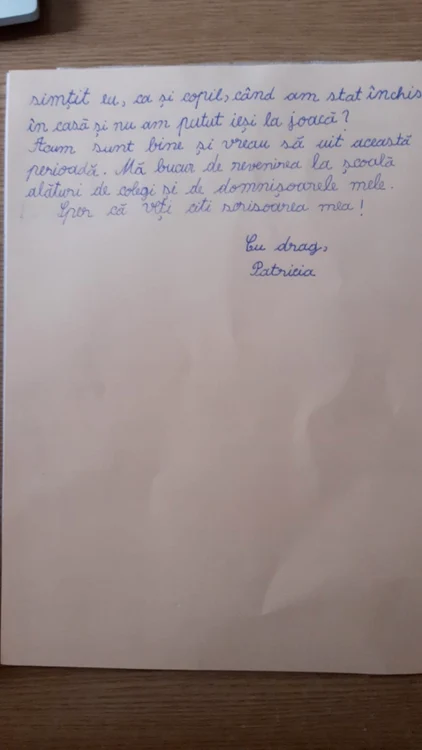 simțit eu, ca și copil, când am stat închis
în casă și nu am putut ieși la joacă?
Acum sunt bine și vreau să uit această
perioadă. Mă bucur de revenirea la școală
alături de colegi și de domnișoarele mele.
Sper că veți citi scrisoarea mea!
Cu drag,
Patricia